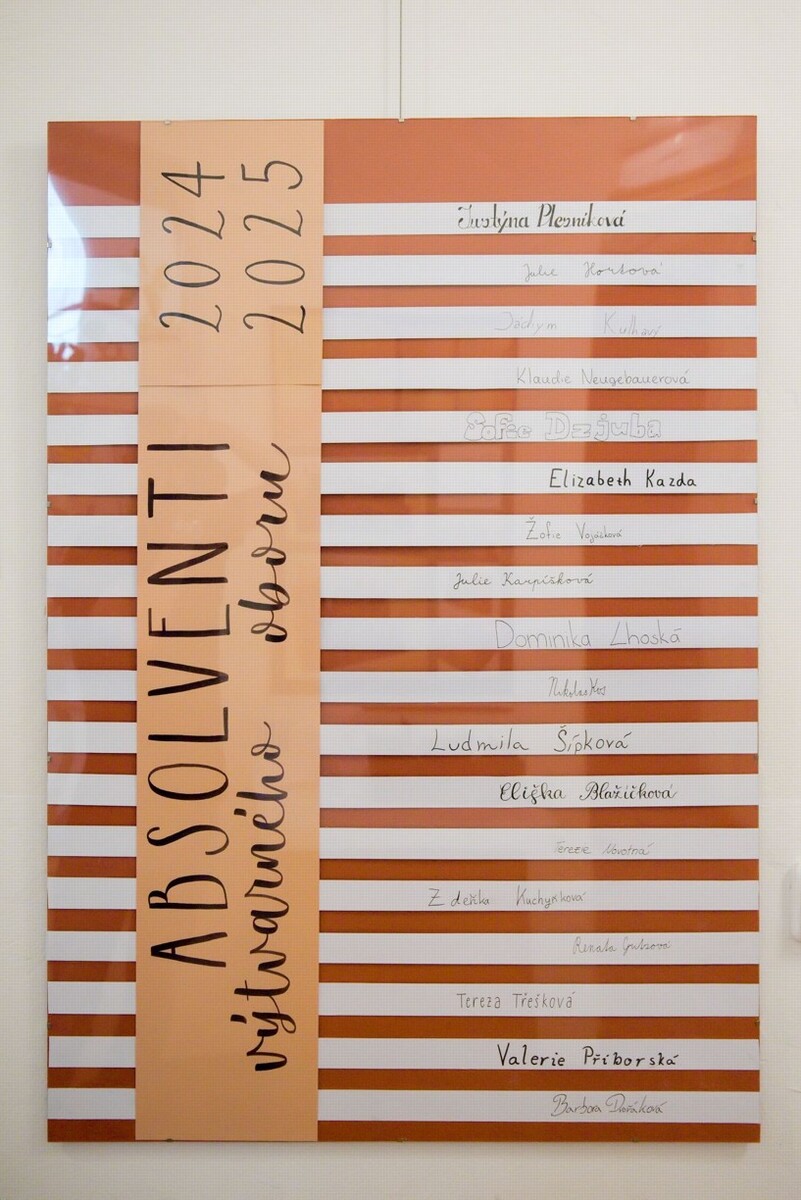 2024
2025
ABSOLVENTI
výtvarného oboru
Justýna Plesníková
Julie Hortová
Jáchym Kulhavý
Klaudie Neugebauerová
Sofie Dzjuba
Elizabeth Kazda
Žofie Vojáčková
Julie Karpíšková
Dominika Lhoská
Nikolas Kos
Ludmila Šípková
Eliška Blažíčková
Terezie Novotná
Zdeňka Kuchyňková
Renata
Tereza Třešková
Valerie Příborská
Barbora